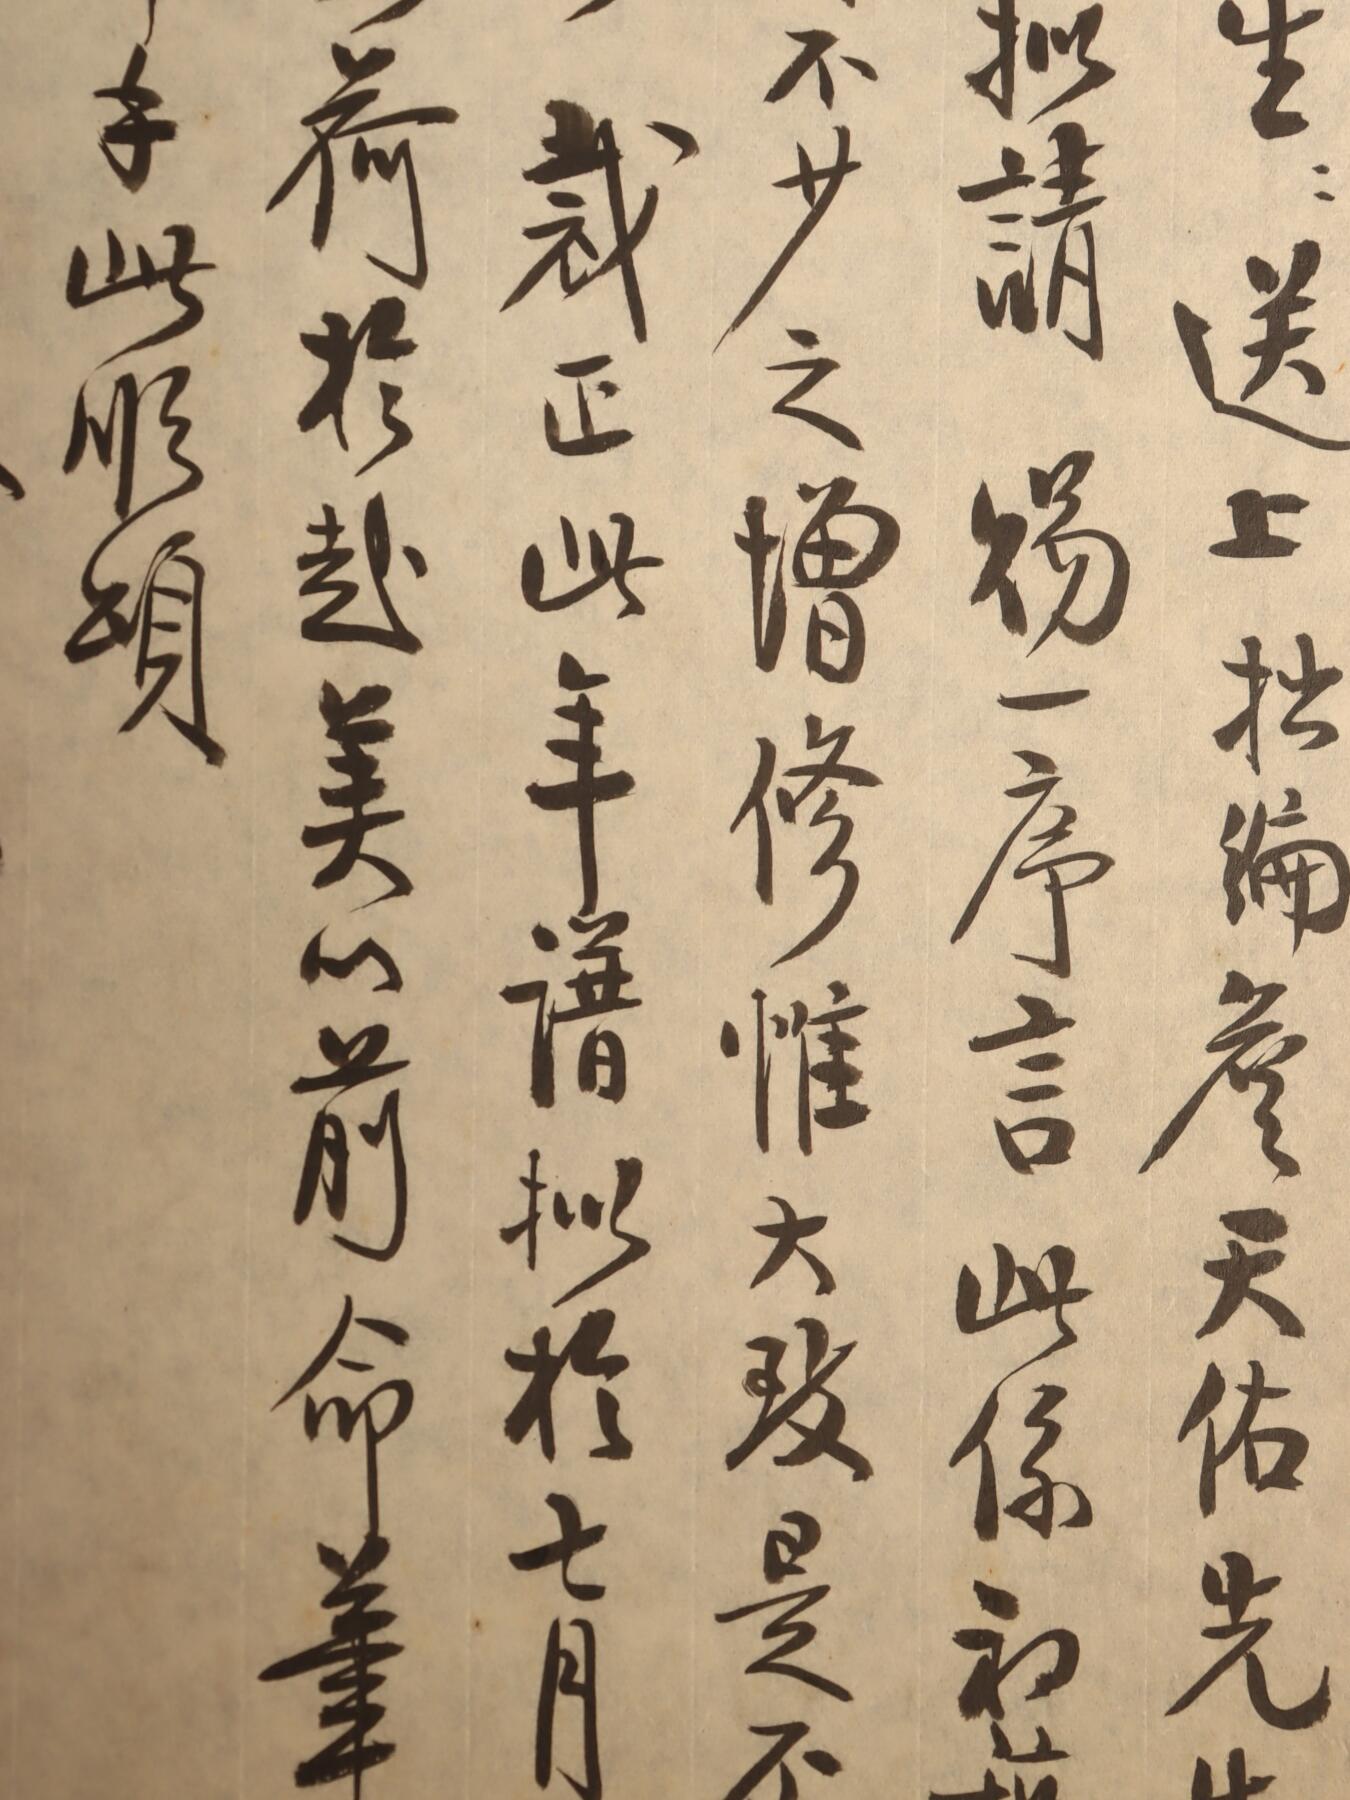 生：送上拙编詹天佑先生
拟請 賜一序言此係初
不少之增修惟大致是不
裁正此年譜拟於七月
荷於赴美以前命筆
手此順頌